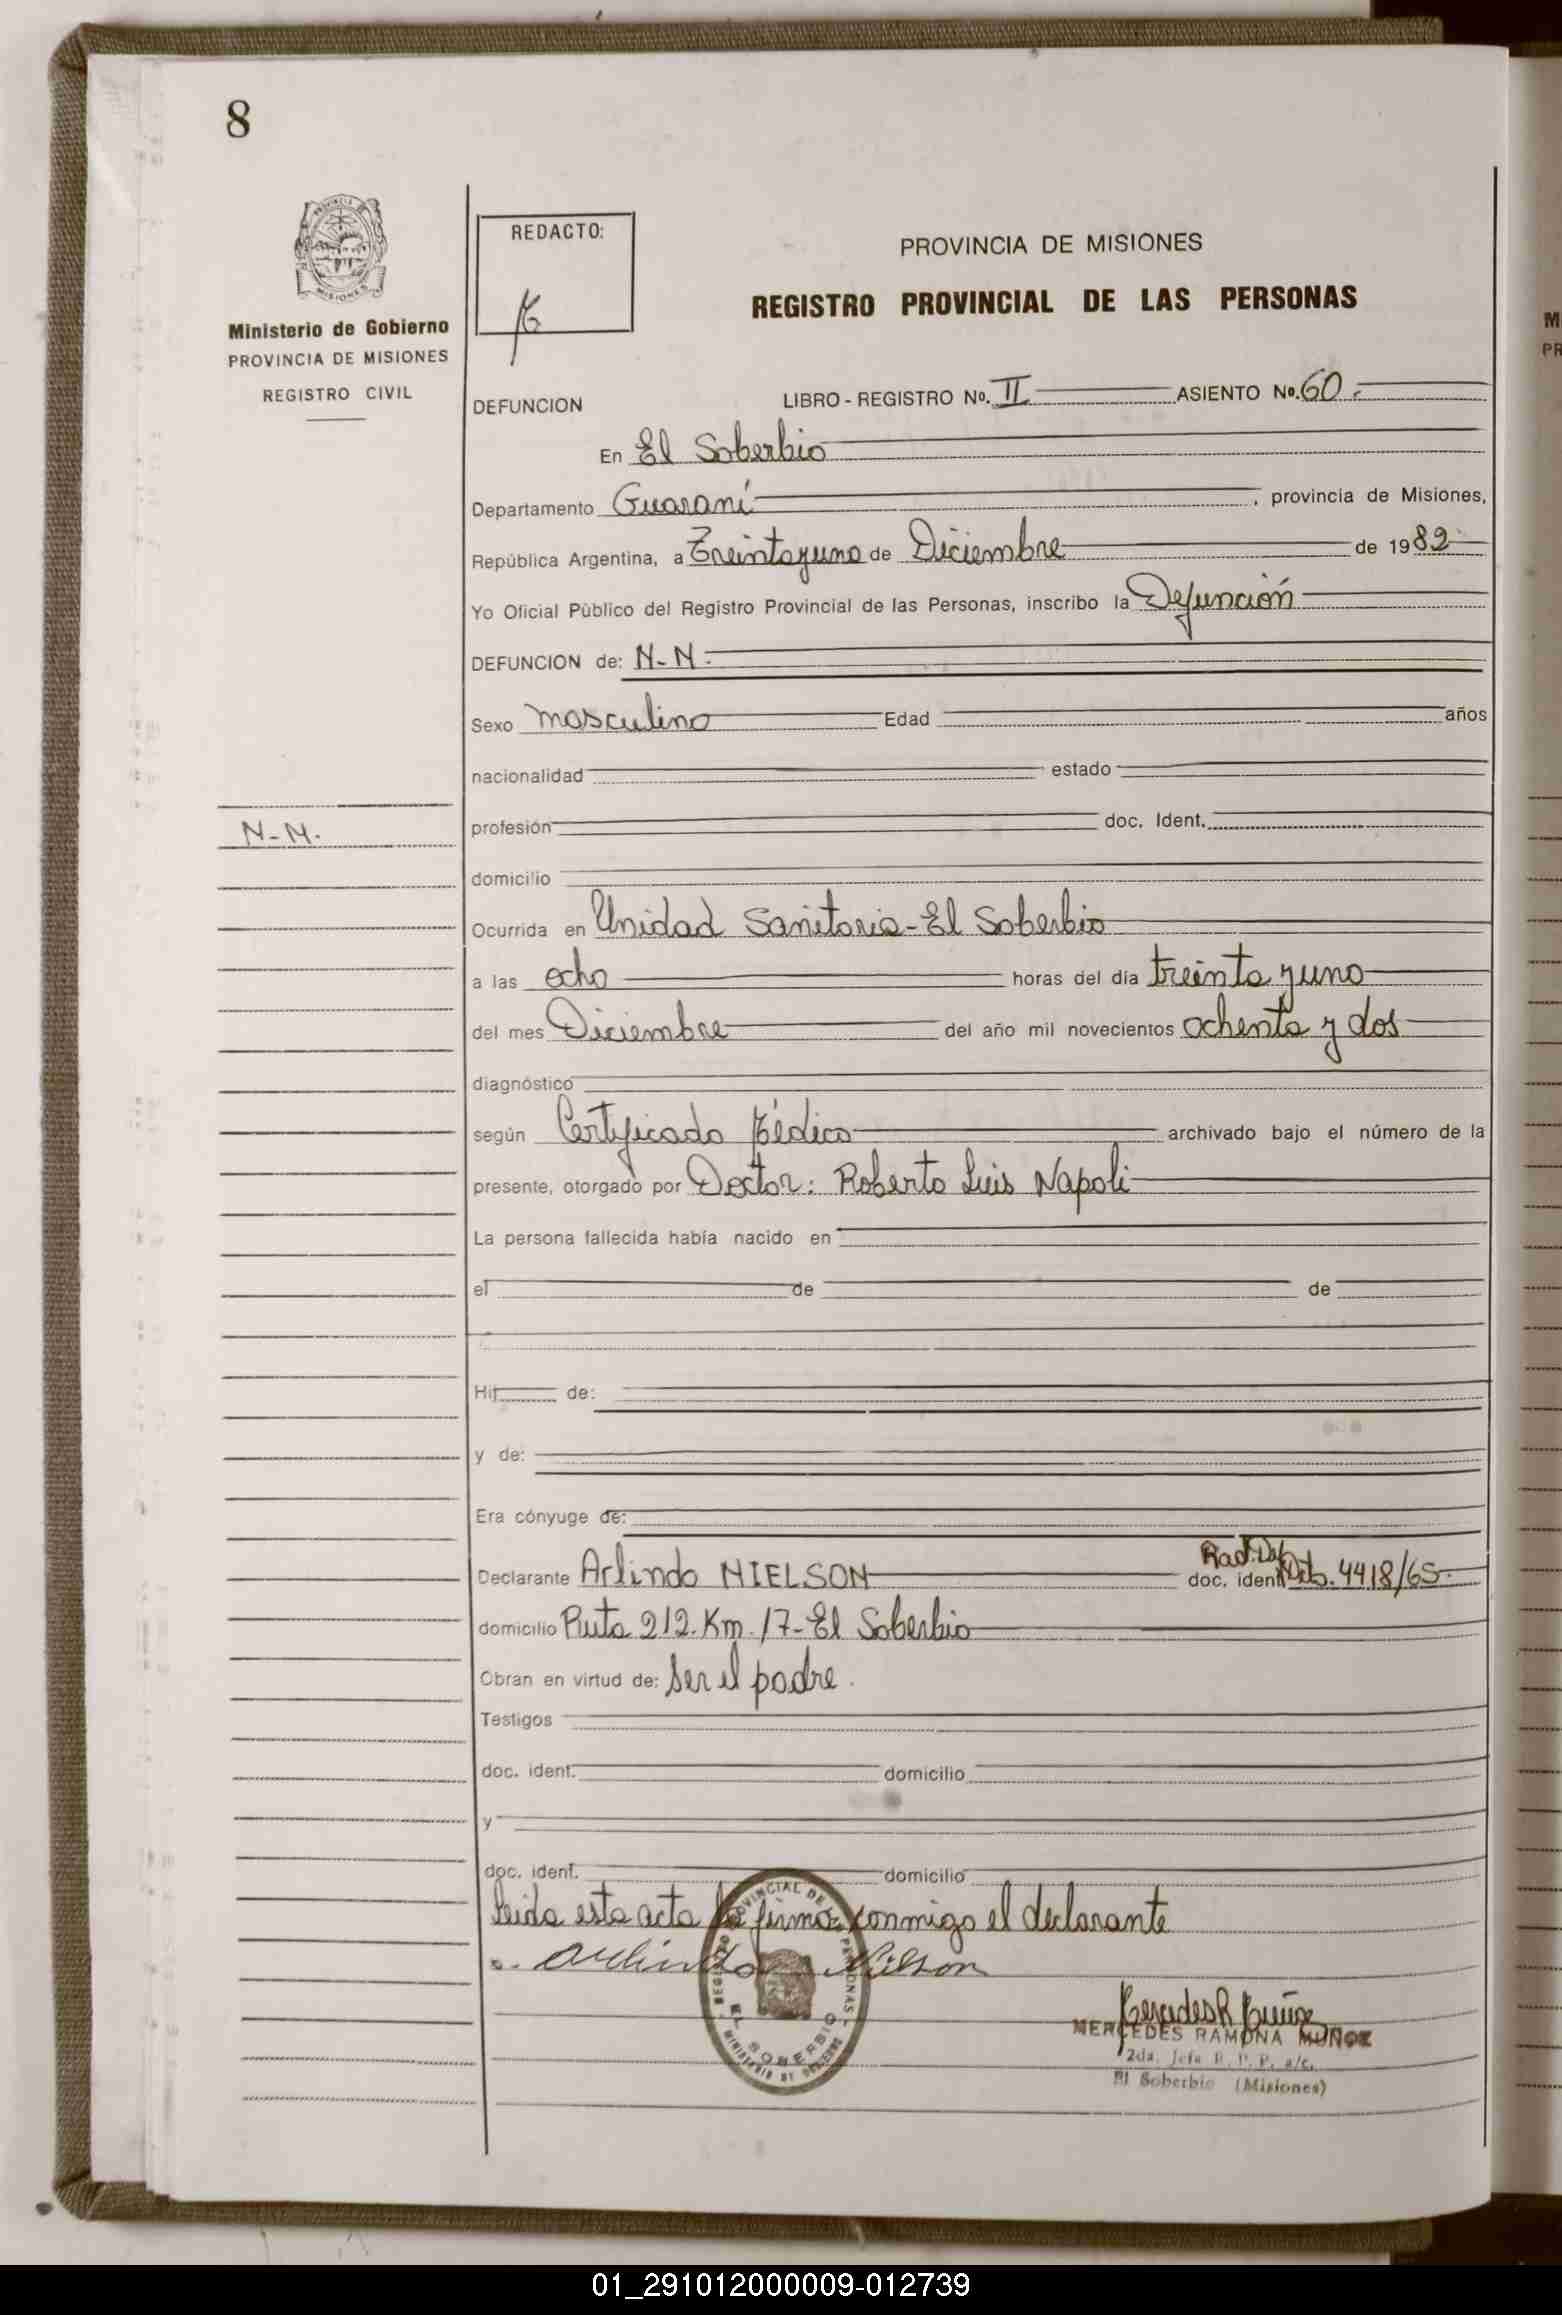 8
PROVINCIA DE
MISIONES
Ministerio de Gobierno
PROVINCIA DE MISIONES
REGISTRO CIVIL
N-N.
REDACTO:
PROVINCIA DE MISIONES
REGISTRO PROVINCIAL DE LAS PERSONAS
DEFUNCION LIBRO - REGISTRO No. II ASIENTO No. 60.
En El Soberbio
Departamento Guaraní , provincia de Misiones,
República Argentina, a Treintayuno de Diciembre de 1982
Yo Oficial Público del Registro Provincial de las Personas, inscribo la Defunción
DEFUNCION de: N-N.
Sexo masculino Edad años
nacionalidad estado
profesión doc. Ident.
domicilio
Ocurrida en Unidad Sanitaria-El Soberbio
a las ocho horas del día treinta y uno
del mes Diciembre del año mil novecientos ochenta y dos
diagnóstico
según Certificado Médico archivado bajo el número de la
presente, otorgado por Doctor: Roberto Luis Napoli
La persona fallecida había nacido en
el de de
Hij de:
y de:
Era cónyuge de:
Declarante Arlindo NIELSON doc. ident. 4418/65.
domicilio Ruta 212. Km. 17-El Soberbio
Obran en virtud de: Ser el padre.
Testigos
doc. ident. domicilio
y
doc. ident. domicilio
leida esta acta la firma conmigo el declarante
Arlindo Nilson
REGISTRO PROVINCIAL DE LAS PERSONAS
EL SOBERBIO
MINISTERIO DE GOBIERNO
Mercedes R Muñoz
MERCEDES RAMONA MUÑOZ
2da. Jefa R. P. P. a/c.
El Soberbio (Misiones)
M
PR
01_291012000009-012739